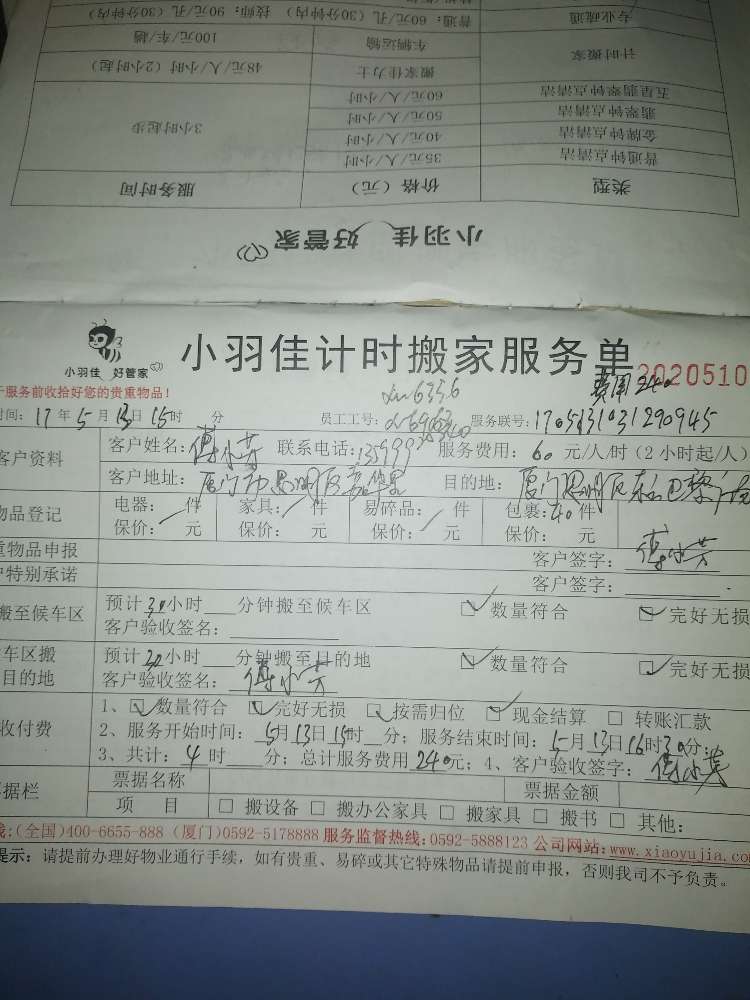 专业疏通 普通：60元/孔（30分钟内） 技师：90元/孔（30分钟内）
计时搬家 车辆运输 100元/车/趟
搬家佳力士 48元/人/小时（2小时起）
五星翡翠钟点清洁 60元/人/小时
翡翠钟点清洁 50元/人/小时
金牌钟点清洁 40元/人/小时 3小时起步
普通钟点清洁 35元/人/小时
类型 价格（元） 服务时间
小羽佳 好管家
小羽佳 好管家
小羽佳计时搬家服务单
2020510
费用240
xm6356
于服务前收拾好您的贵重物品！
时间：17年5月13日15时 分 员工工号： 服务联号：1705131031290945
客户资料 客户姓名： 联系电话：13599 服务费用：60元/人/时（2小时起/人）
客户地址：厦门市思明区 目的地：厦门思明区
物品登记 电器： 件 家具： 件 易碎品： 件 包裹：40件
保价： 元 保价： 元 保价： 元 保价： 元
重物品申报 客户签字：
户特别承诺 客户签字：
搬至候车区 预计30小时 分钟搬至候车区 数量符合 完好无损
客户验收签名：
车区搬 预计30小时 分钟搬至目的地 数量符合 完好无损
目的地 客户验收签名：
收付费 1、数量符合 完好无损 按需归位 现金结算 转账汇款
2、服务开始时间：5月13日15时 分；服务结束时间：5月13日16时30分；
3、共计：4时 分；总计服务费用240元；4、客户验收签字：
据栏 票据名称 票据金额
项 目 搬设备 搬办公家具 搬家具 搬书 其他：
线：(全国)400-6655-888 (厦门)0592-5178888 服务监督热线：0592-5888123 公司网站：www.xiaoyujia.co
提示：请提前办理好物业通行手续，如有贵重、易碎或其它特殊物品请提前申报，否则我司不予负责。